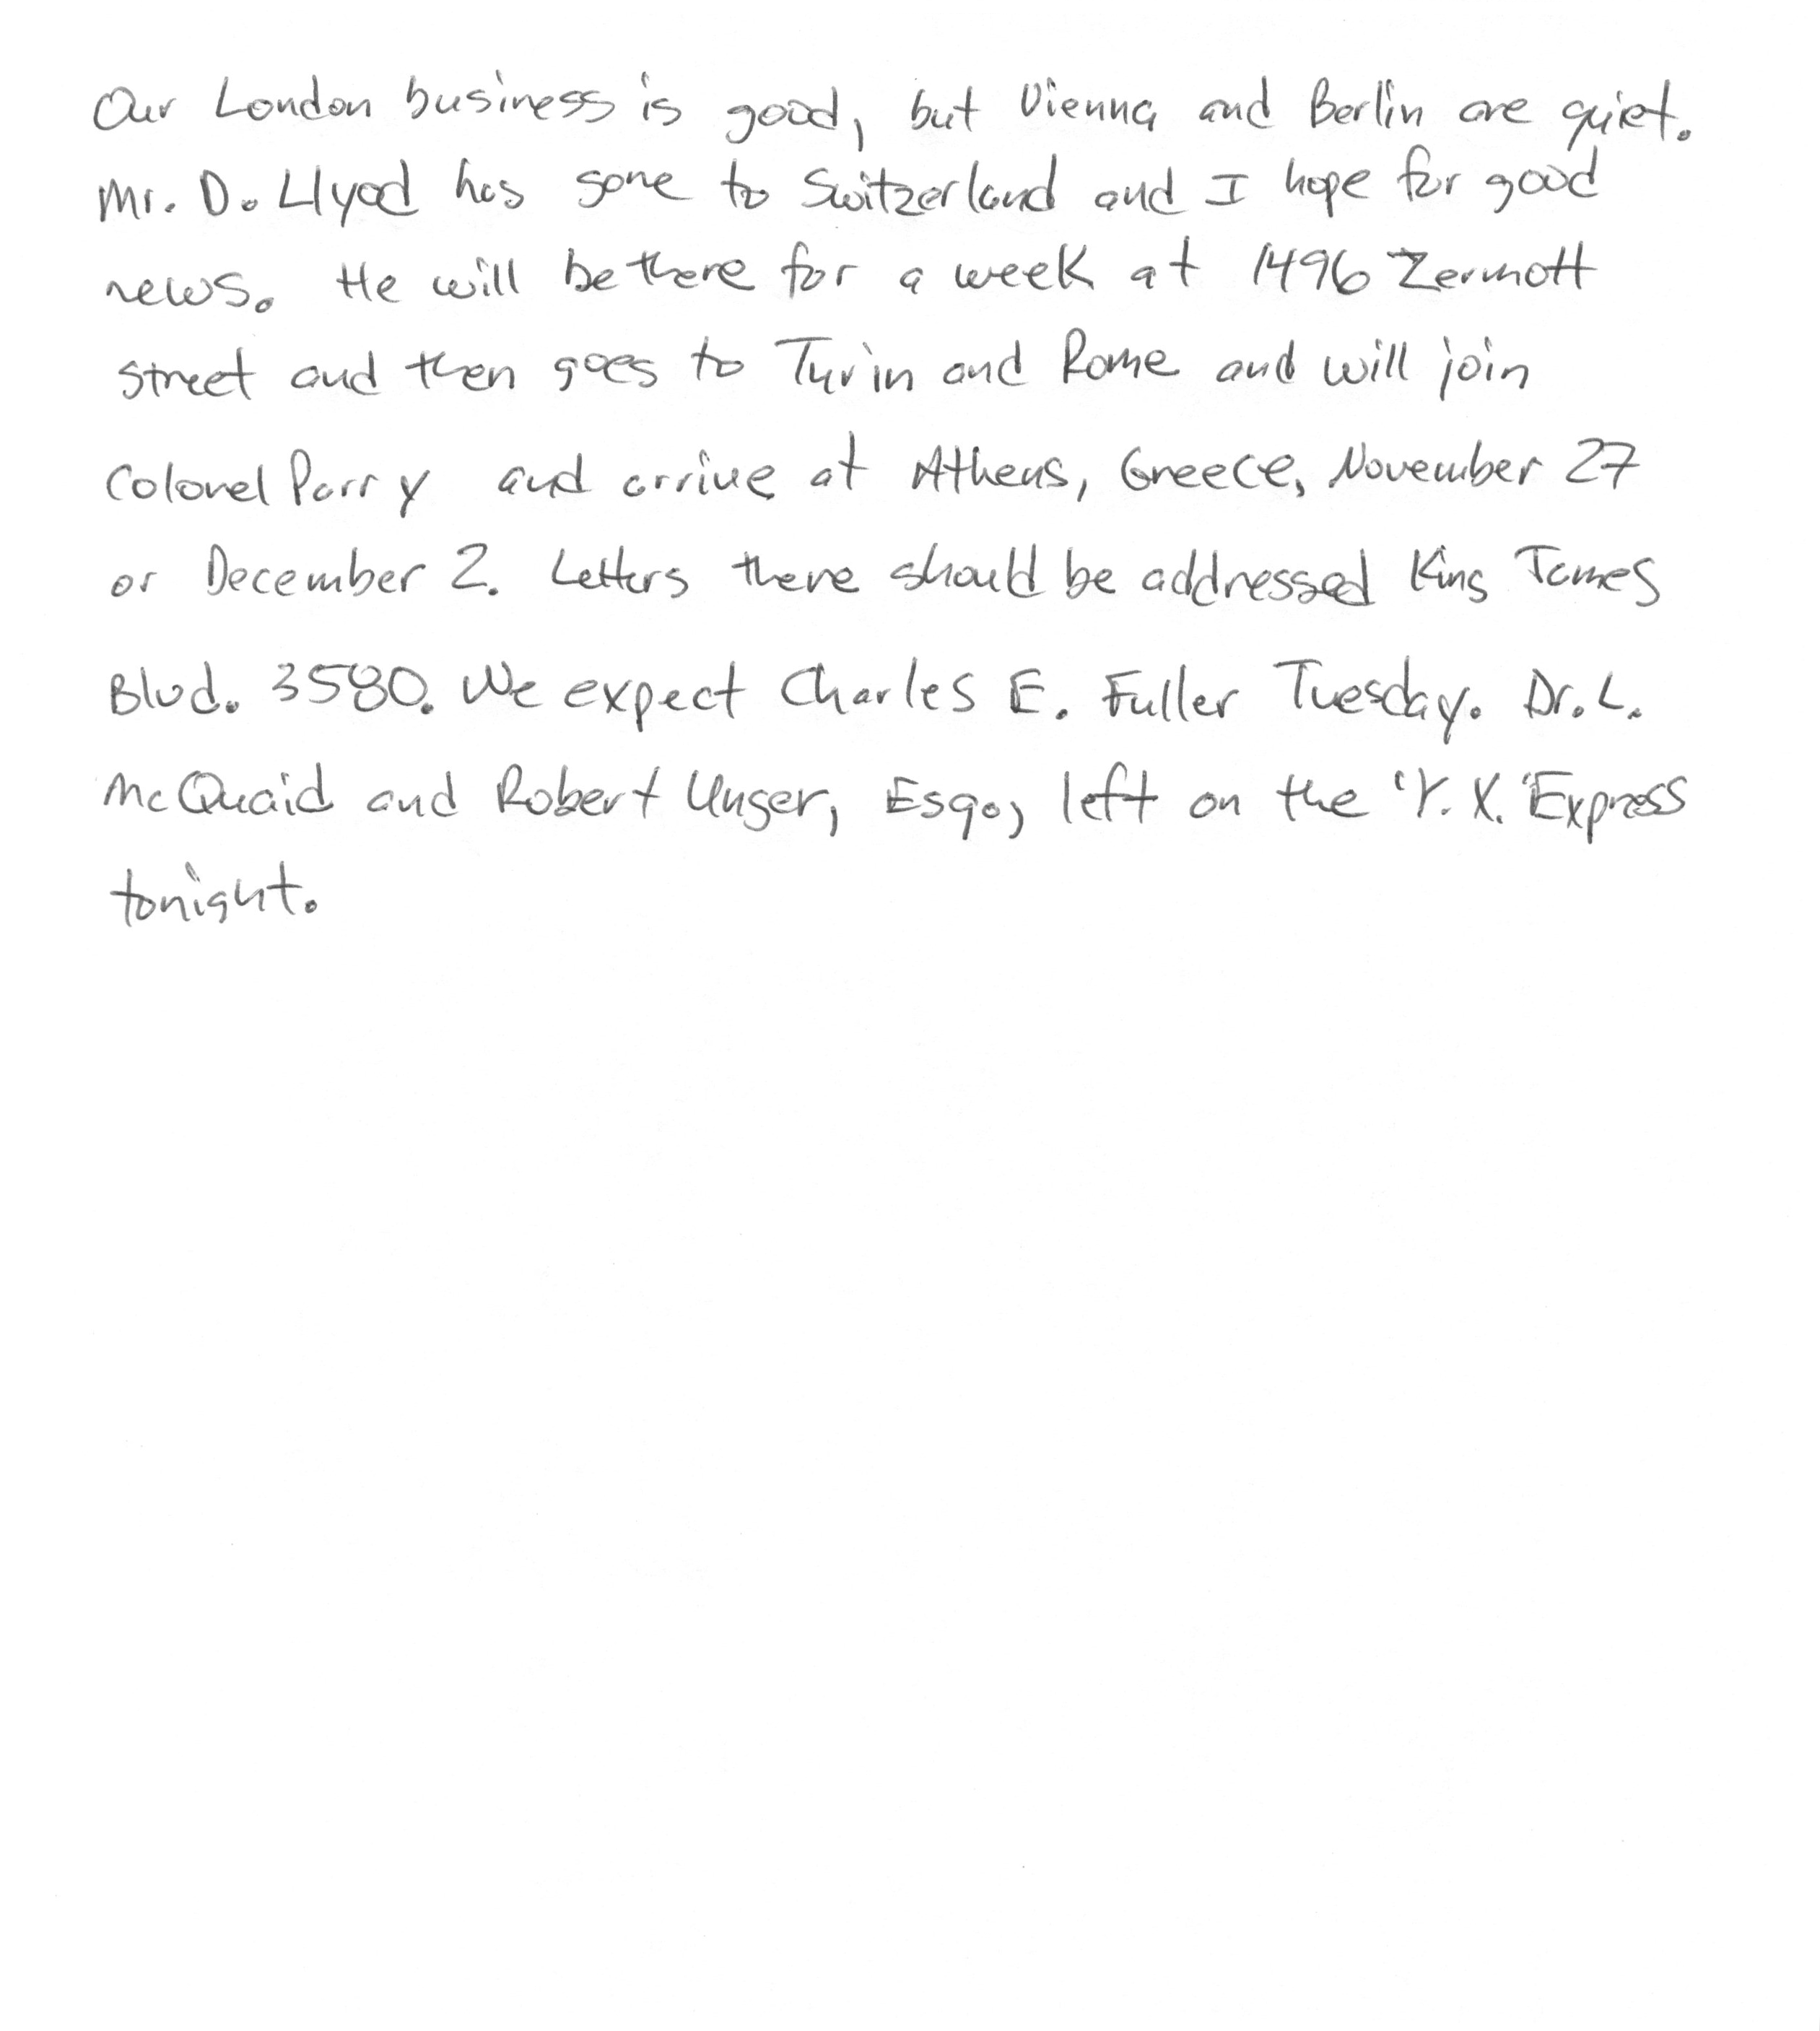 Our London business is good, but Vienna and Berlin are quiet.
Mr. D. Llyod has gone to Switzerland and I hope for good
news. He will be there for a week at 1496 Zermott
street and then goes to Turin and Rome and will join
Colonel Parry and arrive at Athens, Greece, November 27
or December 2. Letters there should be addressed King James
Blvd. 3580. We expect Charles E. Fuller Tuesday. Dr. L.
McQuaid and Robert Unger, Esq., left on the 'Y. X.' Express
tonight.